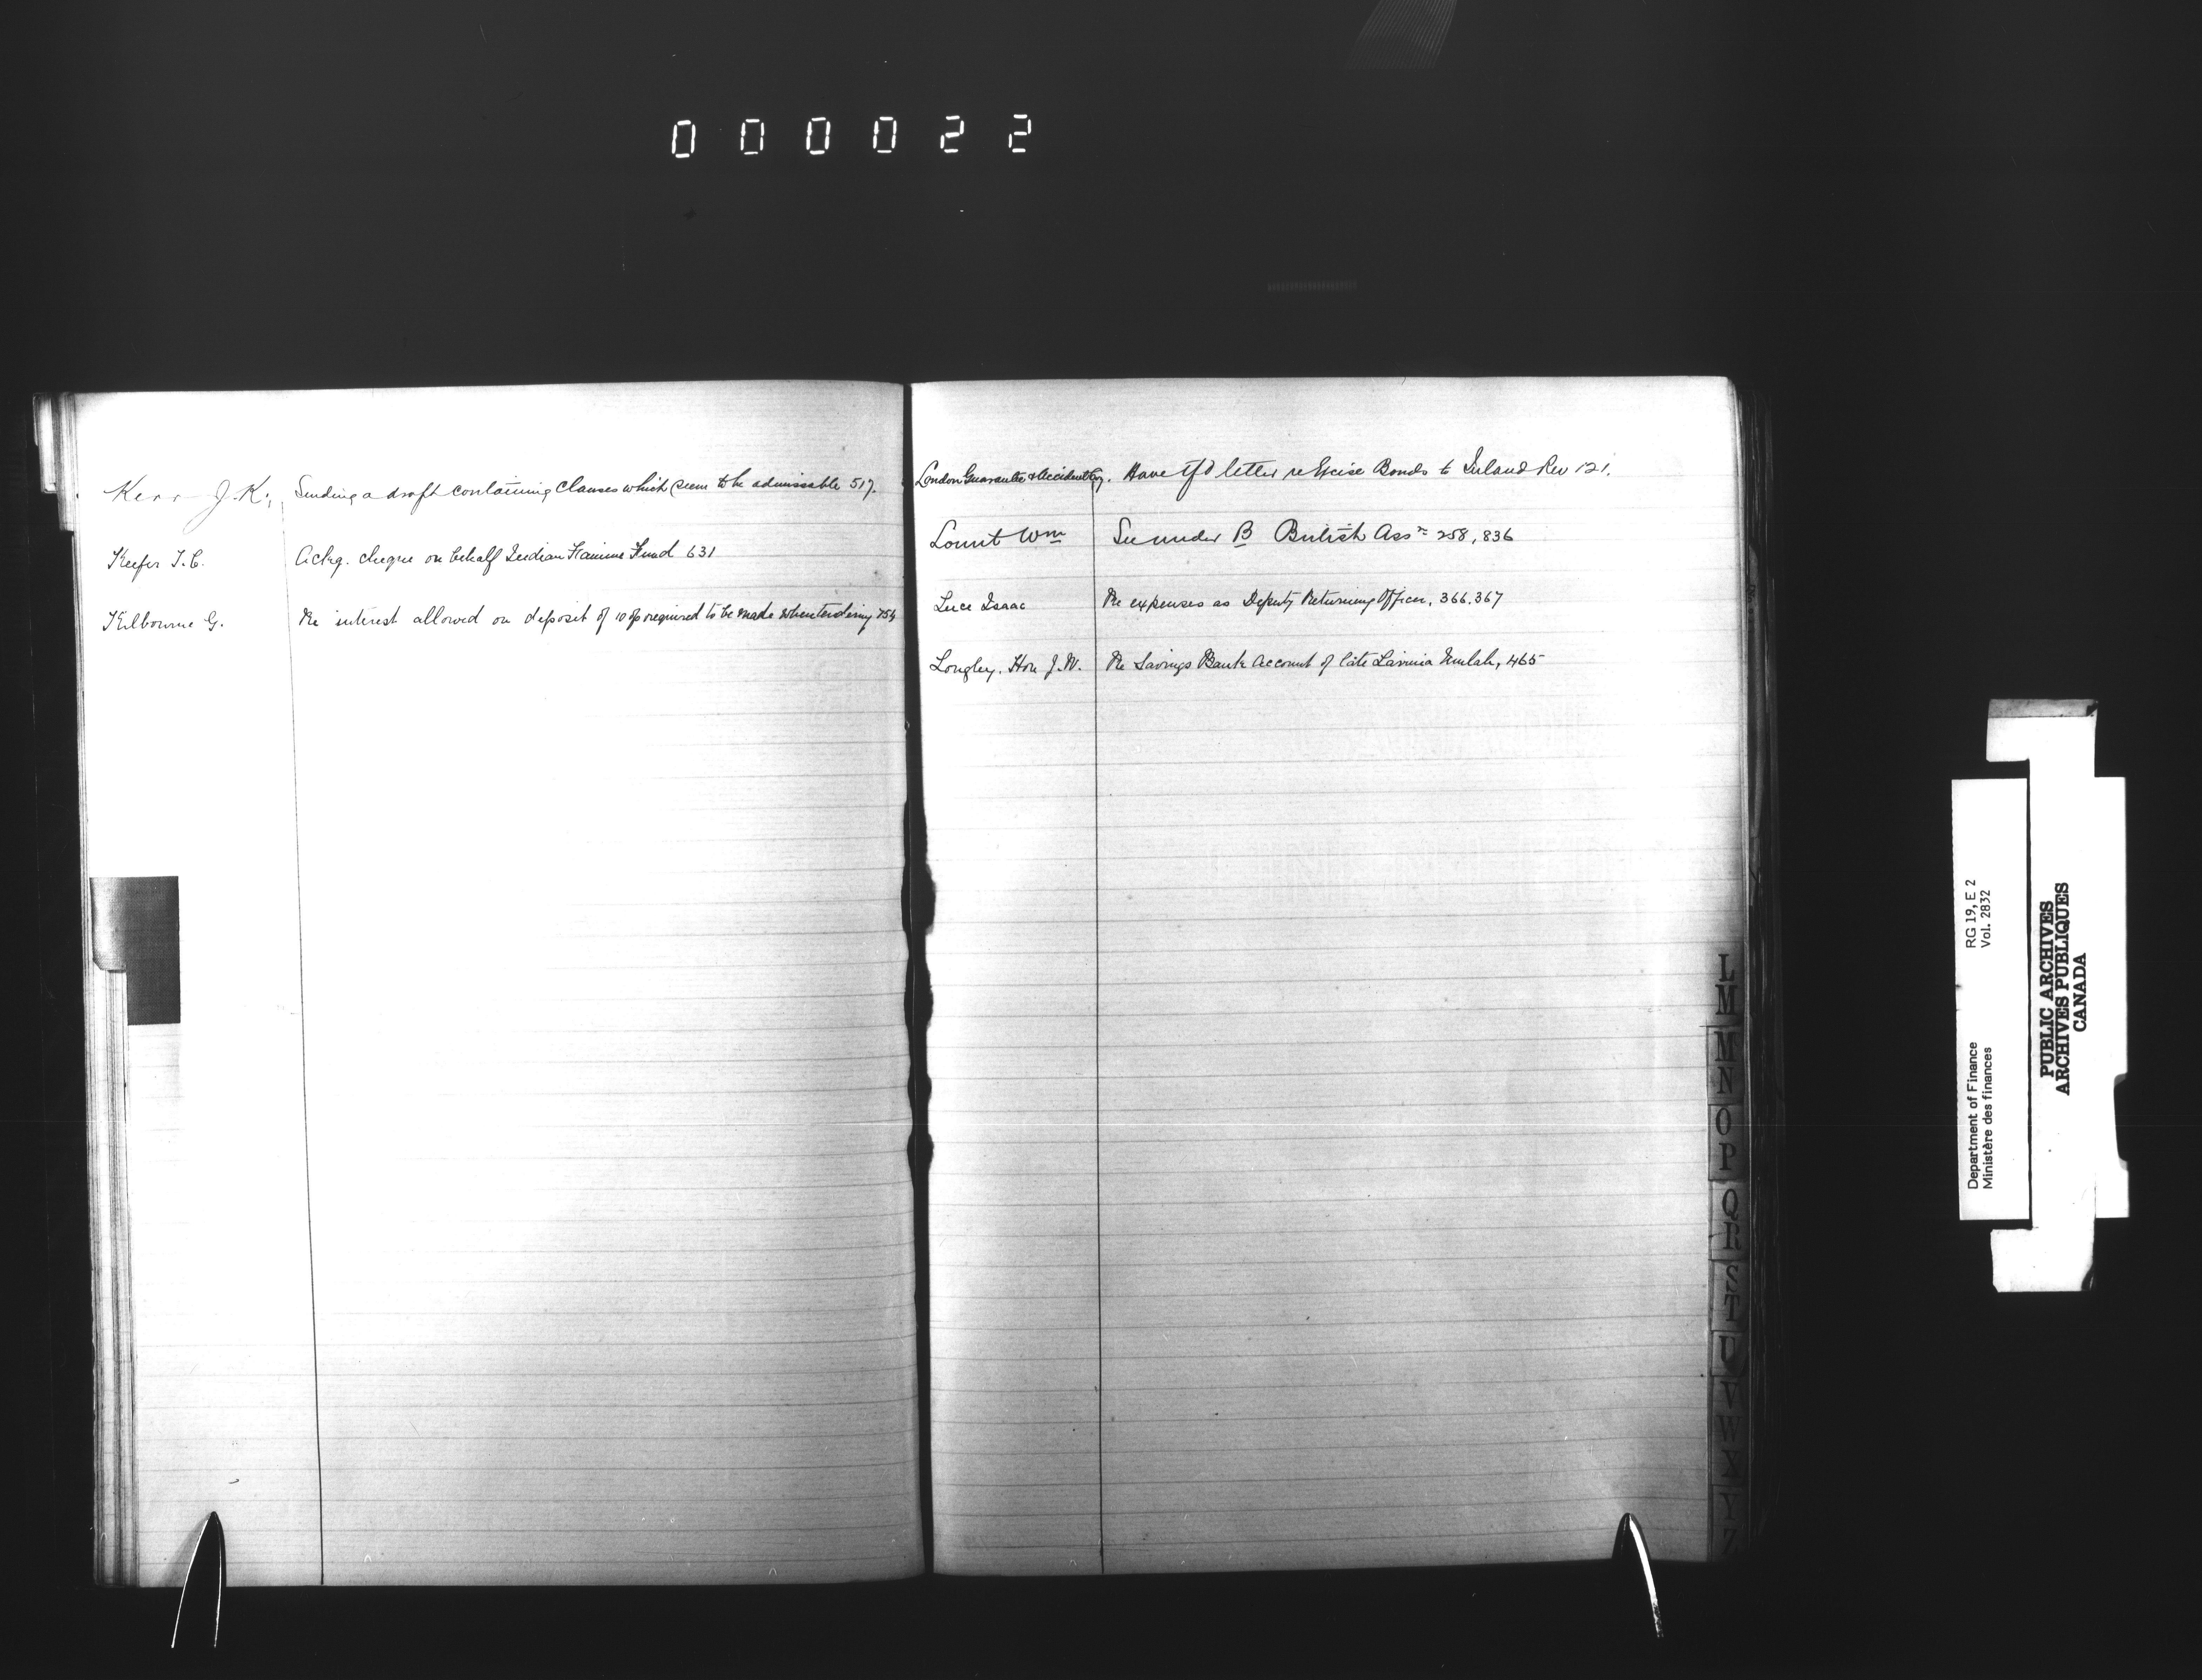 000022
Kerr J. K. Sending a draft containing clauses which seem to be admissable 517.
Keefer T. C. Ackg. cheque on behalf Indian Famine Fund 631
Kilbourne G. Re interest allowed on deposit of 10 % required to be made when tendering 754
London Guarantee & Accident Coy. Have tfd letter re Excise Bonds to Inland Rev 121.
Lount Wm See under B British Assn 258, 836
Luce Isaac Re expenses as Deputy Returning Officer, 366.367
Longley, Hon J. W. Re Savings Bank Account of late Lavinia, 465
L
M
M
N
O
P
Q
R
S
T
U
V
W
X
Y
Z
Department of Finance RG 19, E 2
Ministère des finances Vol. 2832
PUBLIC ARCHIVES
ARCHIVES PUBLIQUES
CANADA